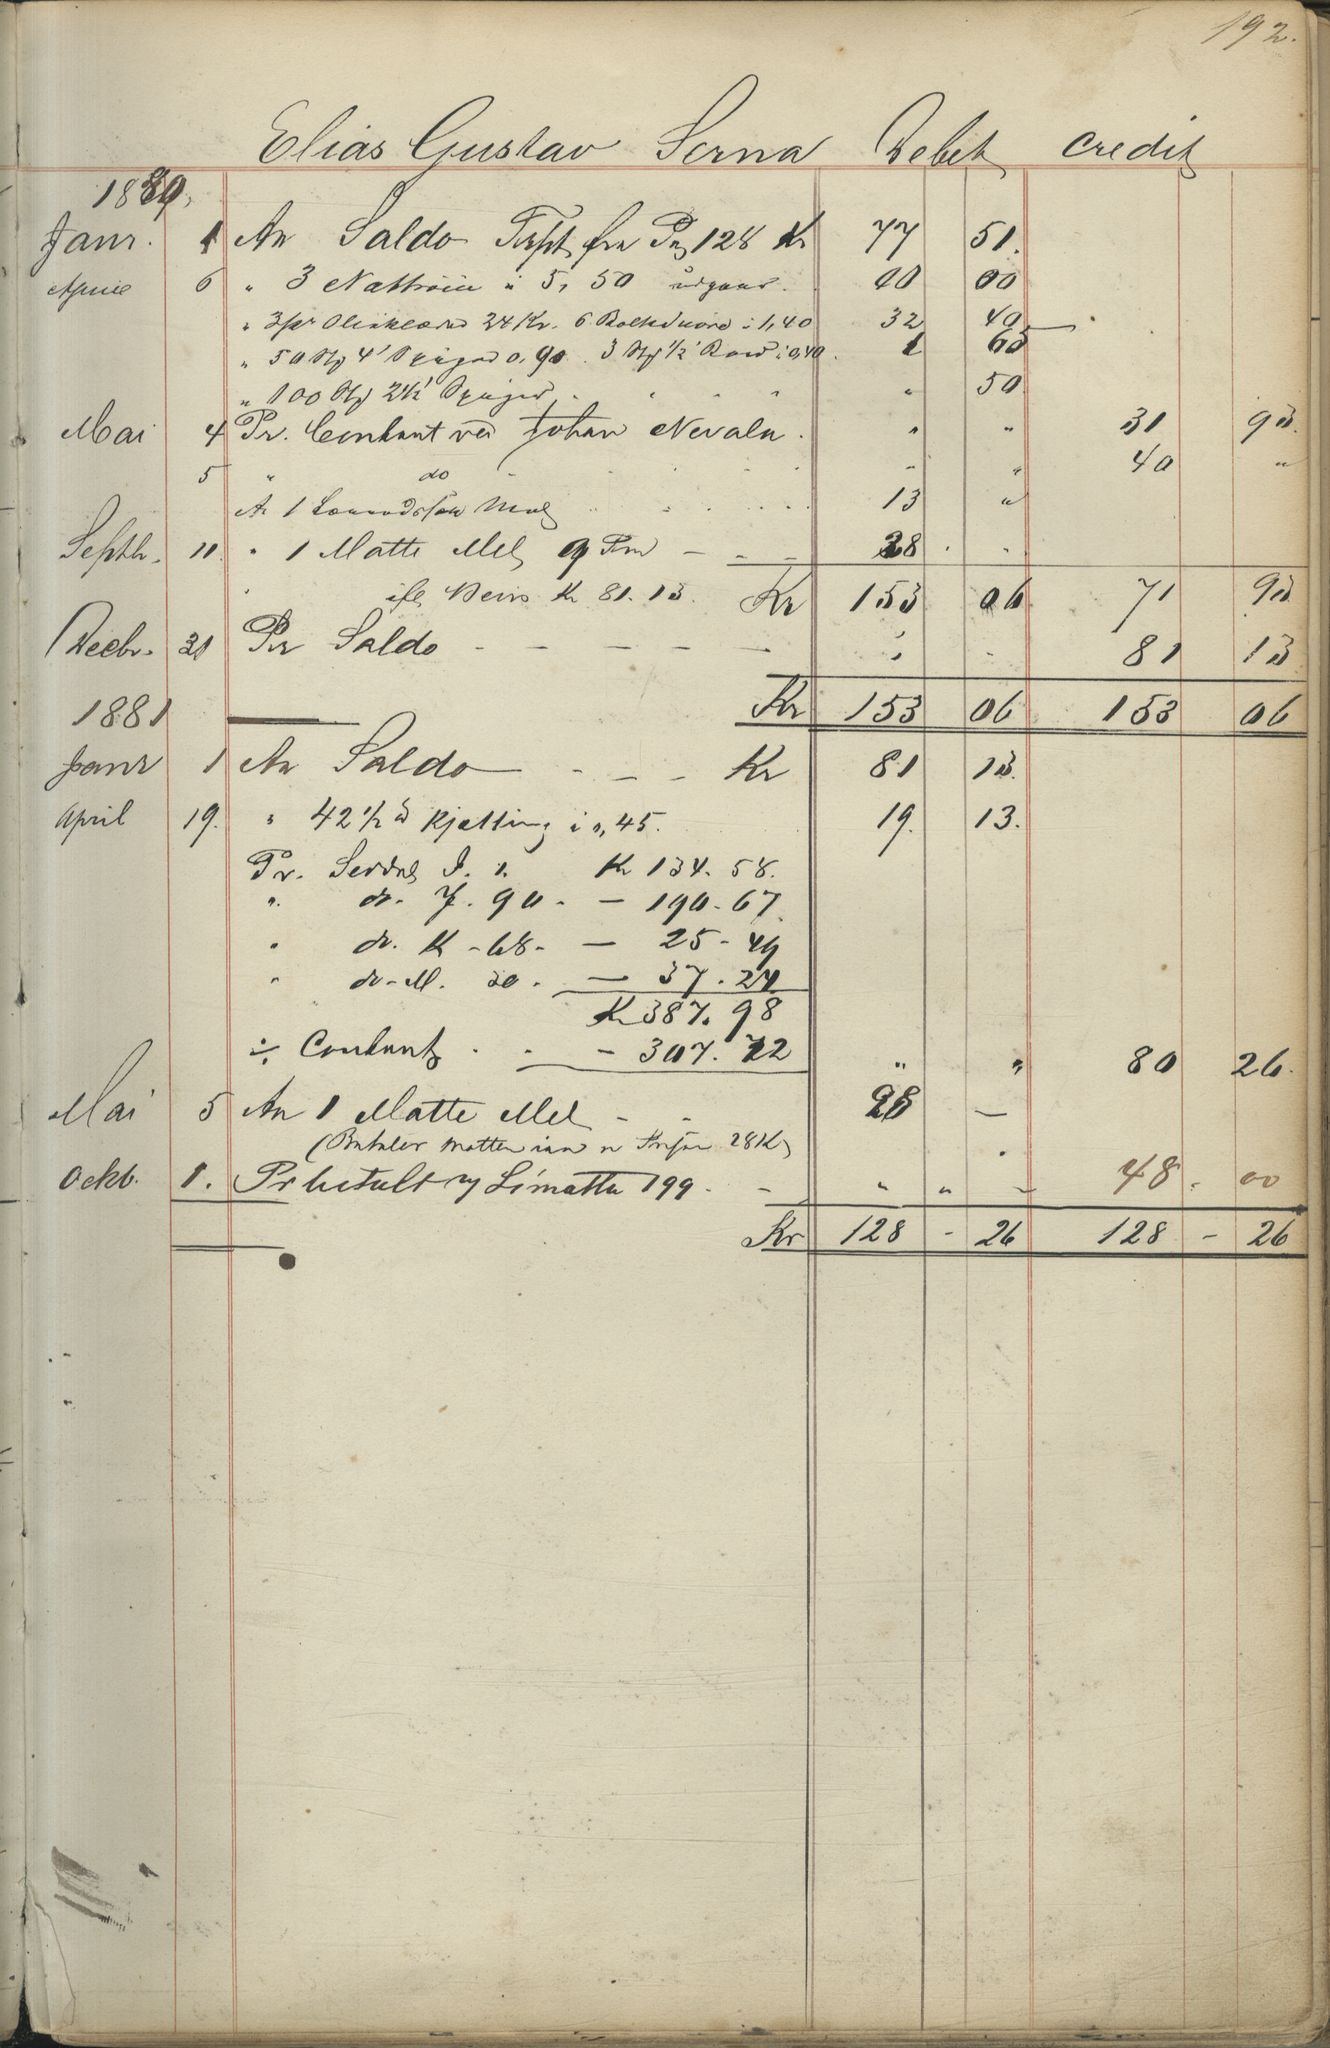 192.
Elias Gustav Serna Debet credit
1880,
Janr. 1 An Saldo Trspt fra Pag 128 Kr 77 51.
April 6 " 3 Nattröie a 5, 50 udgaar. 00 00
" 3 pr Olieklæder 24 Kr. 6 a 1,40 32 40
" 50 Stk 4" Spiger 0,90. 3 Stk 1/2 a 0,40. 1 65
" 100 Stk 2 1/2" Spiger. " " " " 50
Mai 4 Pr. Contant ved Johan Nevala. " " 31 93.
5 " do - - - " " 40 "
An 1 Mel 13 "
Septb. 11. " 1 Matte Mel 9 - - - 28 . .
" Kr 81.13. Kr 153 06 71 93
Decbr. 31 Pr Saldo - - - - - " - 81 13
Kr 153 06 153 06
1881
Janr 1 An Saldo - - - Kr 81 13.
April 19. " 42 1/2 Kjetting a 0,45. 19. 13.
Pr. Seddel J. 1. Kr 134. 58.
" do. J. 90. - 190-67.
" do. K-68- - 25-49
" do-M. 20. - 37.24
Kr 387. 98
÷ Contant . . - 307.72 " " 80 26.
Mai 5 An 1 Matte Mel - - 28 -
(Betaler Matten 28 Kr)
Octb. 1. Pr betalt Limatta 199. - " " - 48. 00
Kr 128 - 26 128 - 26